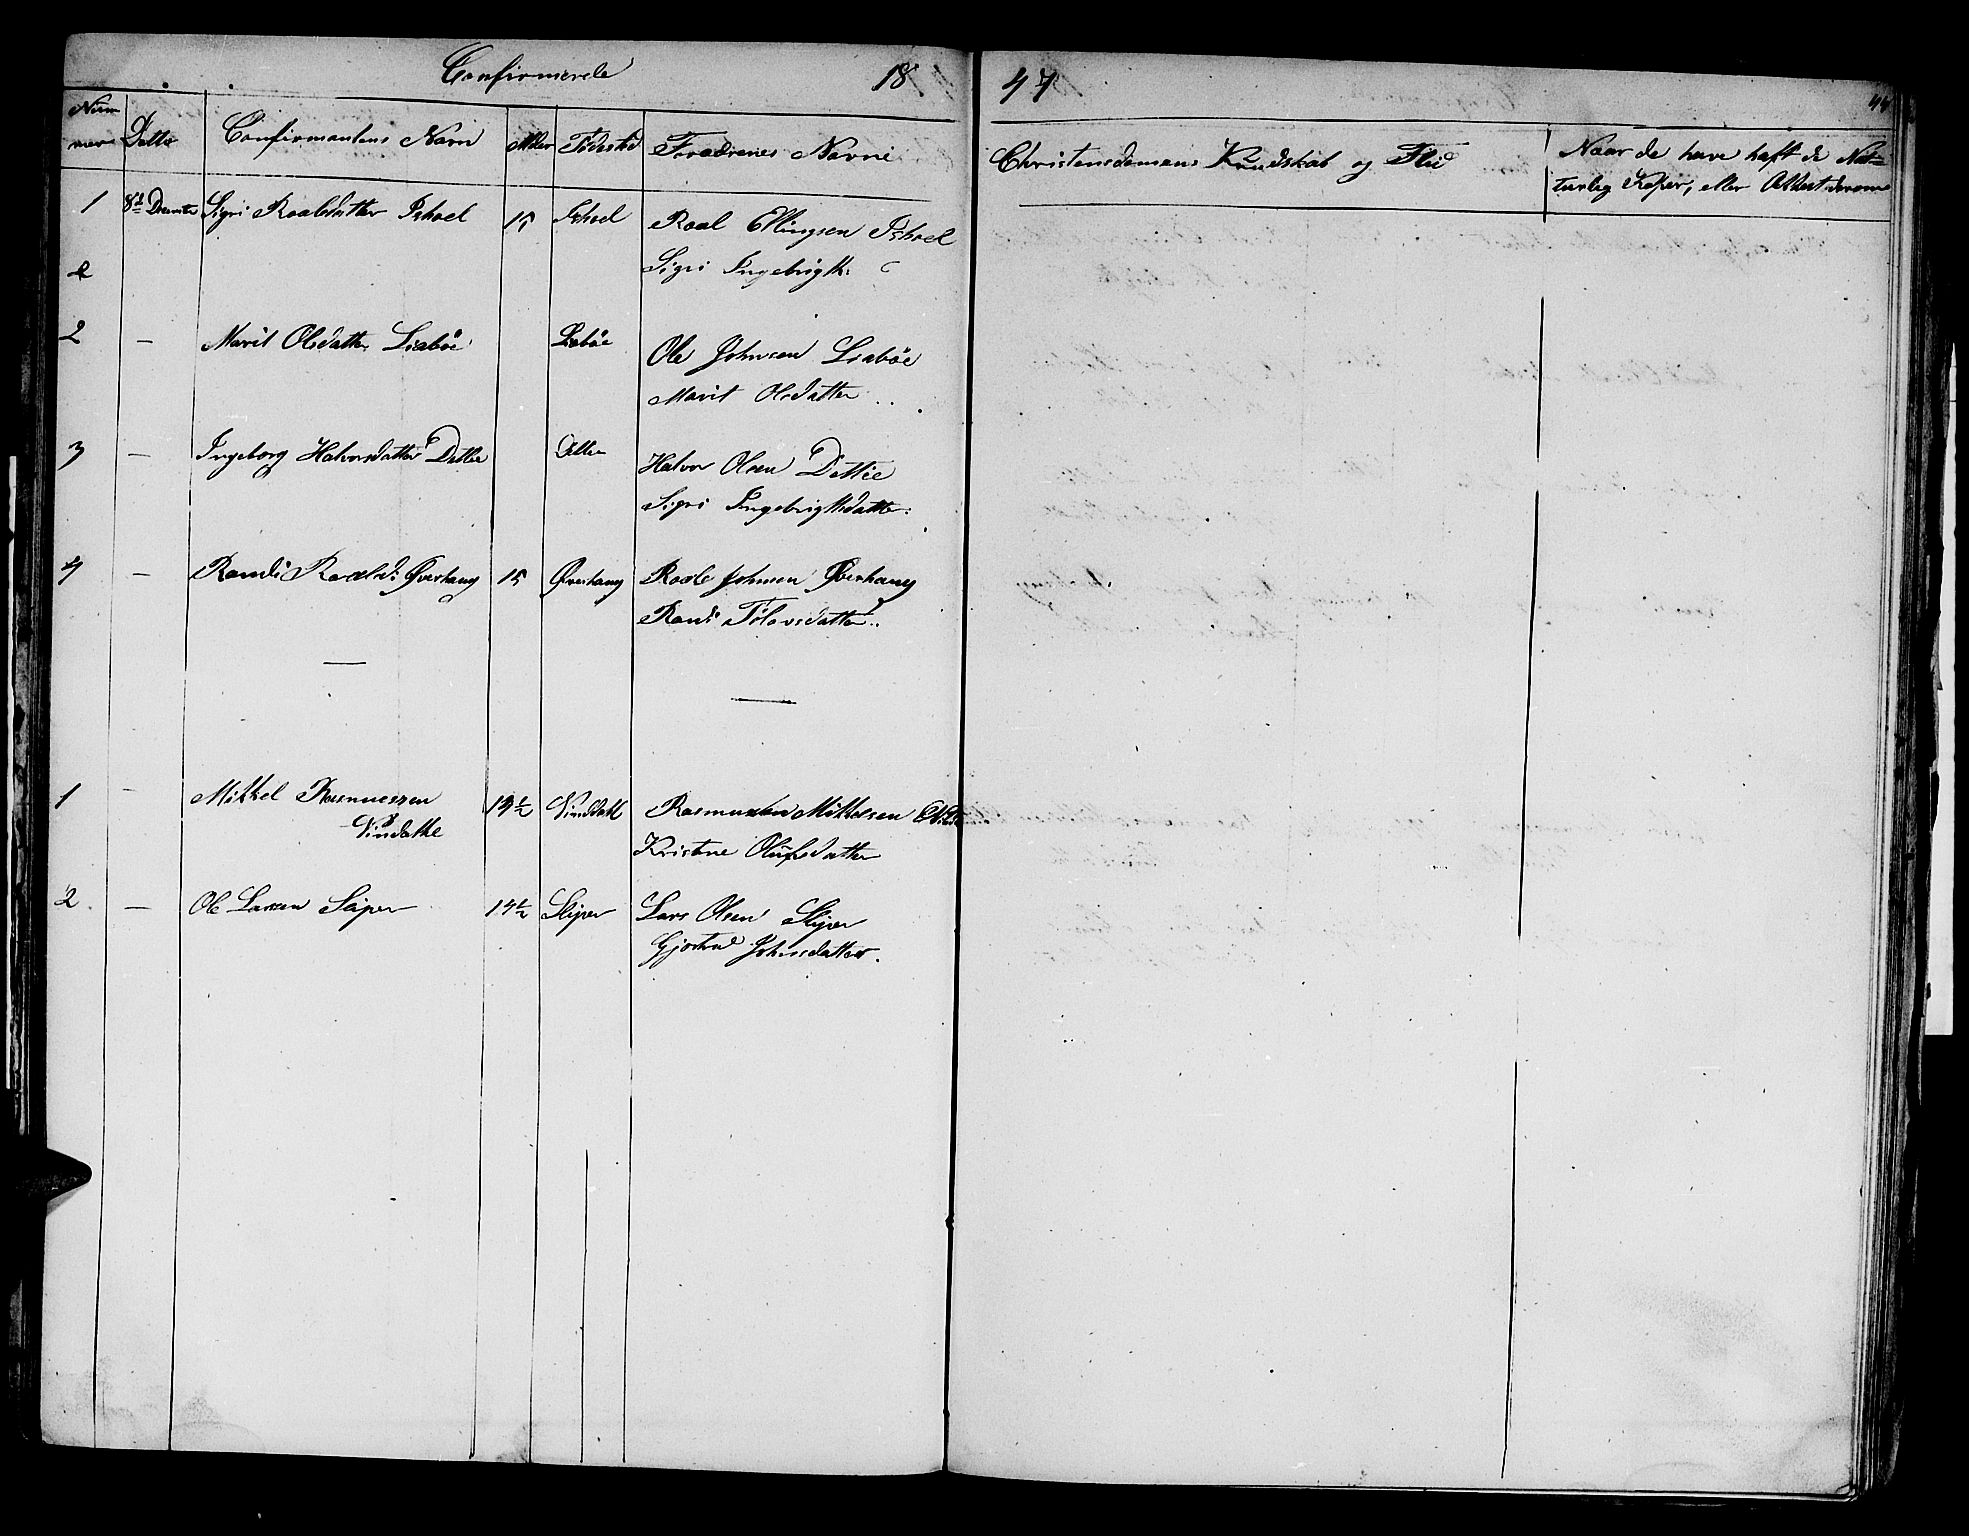 Confirmerede 18 47
44
Num
mer Datto Confirmantens Navn Alder Födested Forældrenes Navne Christendomens Kundskab og Flid Naar de have haft de Nat-
turlig Koper, eller Attest derom
1 8de Sigri Roaldsdatter Ishoel 15 Ishoel Roal Ellingsen Ishoel
Sigri Ingebrigth:
2 — Marit Olsdatter Liabøe Liabøe Ole Johnsen Liabøe
Marit Olsdatter
3 — Ingeborg Halvorsdatter Detlie Detlie Halvor Olsen Detlie
Sigri Ingebrigtsdatter:
4 — Randi Roalsd: Øverhaug 15 Øverhaug Roale Johnsen Øverhaug
Randi Tolovsdatter
1 — Mikkel Rasmussen 14½ Vindahl Rasmus Mikkelsen
Vindahl
Kristine Olufsdatter
2 — Ole Larsen Sliper 14½ Sliper Lars Olsen Sliper
Gjertrud Johnsdatter.